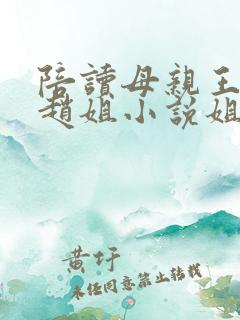 陪讀母親王
趙姐小説姐
黄圩
未任同意禁止转载